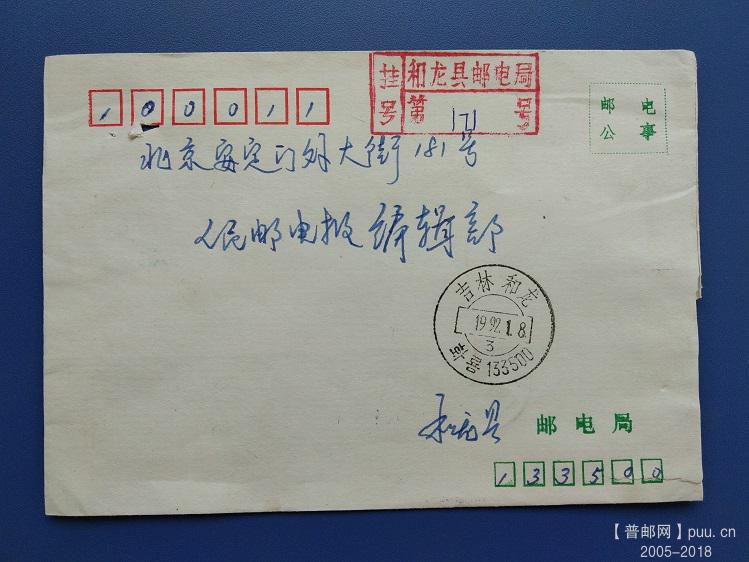 100011
挂号 和龙县邮电局
第 171 号
邮电
公事
北京安定门外大街181号
人民邮电报编辑部
吉林 和龙
1992.1.8.
3
133500
和龙县 邮电局
133500
【普邮网】puu.cn
2005-2018